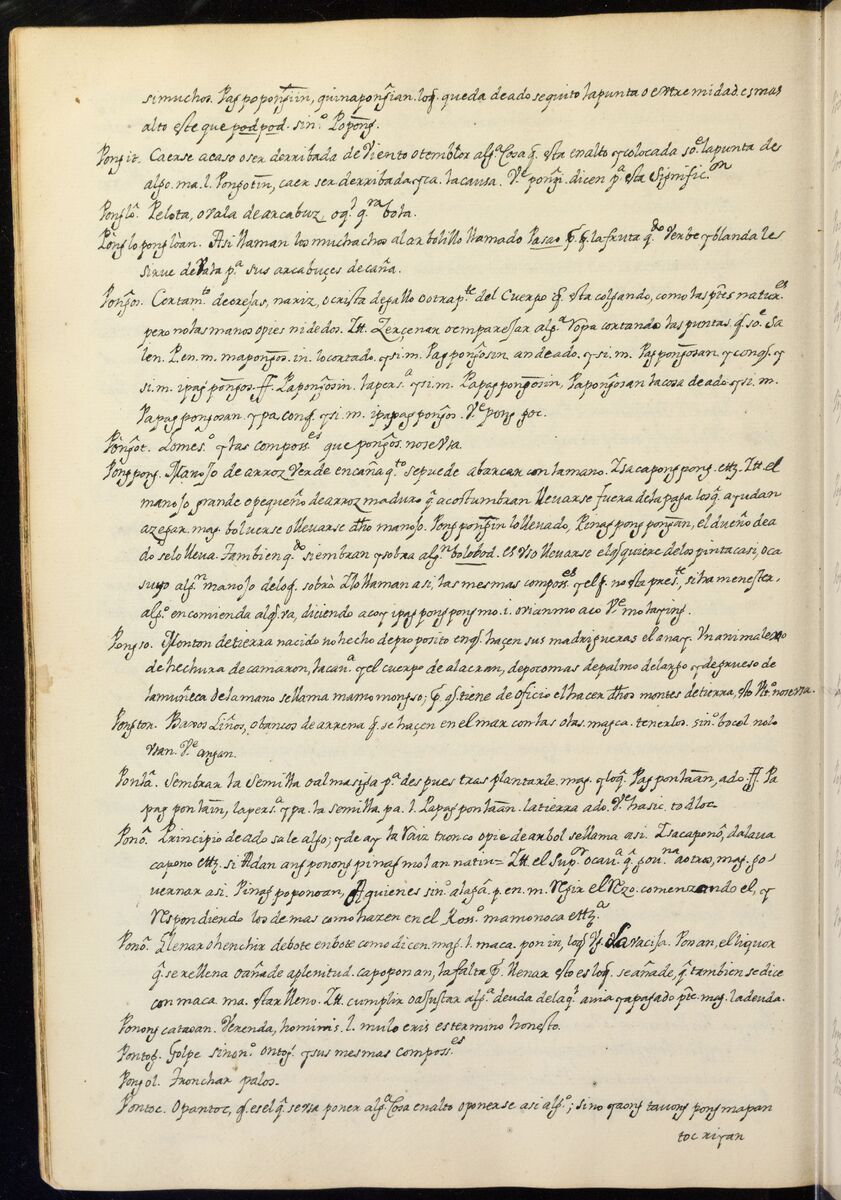 si muchos. Pag popong̃iin, quinapong̃ian. loq̃. queda de ado se quito la punta o extremidad. es mas
alto este que podpod. sin.º Popong̃.
Caerse acaso o ser derribada de Viento o temblor alg.ª Cosa q̃. esta en alto y colocada so.e la punta de
algo. ma. l. Pongotin, caer ser derribada la causa. V.e pong̃i. dicen p.ª esta Signific.on
Pelota, o vala de arcabuz, bota.
Asi llaman los muchachos al arbolillo llamado Pasao p. q. la fruta q.do Verde y blanda les
sirue de Vala p.ª sus arcabuçes de caña.
Pong̃os. Cortam.to de orejas, nariz, o cresta de gallo o otra p.te del Cuerpo q̃. esta colgando, como las
pero no las manos o pies ni dedos. Itt. Zerçenar o emparejar alg.ª ropa cortando las puntas. q̃ so.e Sa
len. P. en. m. mapong̃os. in. lo cortado. y si. m. Pag pong̃osin. an de ado. y si. m. Pag pong̃osan. y conq̃. y
si. m. ipag pong̃os. ff. Papong̃osin. la pers.ª y si. m. Papag pong̃osin, Papong̃osan la cosa de ado y si. m.
Papag pong̃osan. y pa conq̃. y si. m. ipapag pong̃os. V.e pong̃
y las composs.es que pong̃os. nos e Vsa.
Pong̃pong̃. Manojo de arroz Verde en caña q.to se puede abarcar con la mano. Isaca pong̃pong̃. ettz. Itt. el
manojo grande o pequeño de arroz maduro q̃ acostumbran lleuarse fuera de la paga los q̃. ayudan
a zegar. mag. boluerse o lleuarse dho manojo. Pong̃pong̃in lo lleuado, Pinag pong̃pong̃an, el dueño de a
do se lo lleua. Tambien q.do siembran y sobra alg.n bolobod. es Vso lleuarse el q̃ quiere de los pintacasi, o ca
suyo alg.n manojo de loq̃. sobrò. Y lo llaman asi, las mesmas composs.es y el q̃. no esta pres.te, si ha menester,
alg.º encomienda diciendo acoy ipag pong̃pong̃ mo. i. ovianmo aco
Pongso. Monton de tierra nacido no hecho de proposito en q̃. haçen sus madrigueras el anay. Vn animalexo
de hechura de camaron, la cau.ª y el cuerpo de alacran, de poco mas de palmo de largo y de grueso de
la muñeca de la mano se llama mamomongso; p. q̃. tiene de oficio el hacer dhos montes de tierra, no se Vsa.
Pongtor. Baxos o bancos de arrena q̃. se haçen en el mar con las olas. mag. ca. tenerlos. sin.º bocol no lo
Vsan. V.e angan.
Sembrar la Semilla o almasiga p.ª despues trasplantarle. mag. y loq̃. Pag pontãan, ado. ff. Pa
pag pontãin, la pers.ª y pa. la semilla. pa. l. Papag pontãan. la tierra ado. V.e hasic.
Ponõ. Principio de ado sale algo; y de aqui la raiz tronco o pie de arbol se llama asi. Isaca ponõ, dalaua
capono ettz. si Adan ang ponong pinagmolan natin = Itt. el Sup.or o cau.ª q̃. a otros, mag. go
uernar asi. Pinag poponoan, A quienes sin.º p. en. m. regir el rezo. comenzando el, y
respondiendo los de mas como hazen en el Ross.º mamonoca ettz.ª
Ponõ. Llenar o henchir de bote en bote como dicen. mag. l. maca. ponin, loq̃. la racija. Ponan, el liquor
q̃. se rellena o añade a plenitud. capoponan, la falta p. llenar esto es loq̃. se añade, q̃ tambien se dice
con maca. ma. estar lleno. Itt. cumplir o ajustar alg.ª deuda de la q.l auia ya pagado p.te. mag. la deuda.
Ponong cataoan. Verenda, hominis. l. mulieris es termino honesto.
Pontog. Golpe sinon.º ontog. y sus mesmas composs.es
Pongol. Tronchar palos.
Pontoc. O pantoc, q̃. es el q̃. se vsa poner alg.ª Cosa en alto o ponerse asi alg.º; sino ang tauong mapan
toc